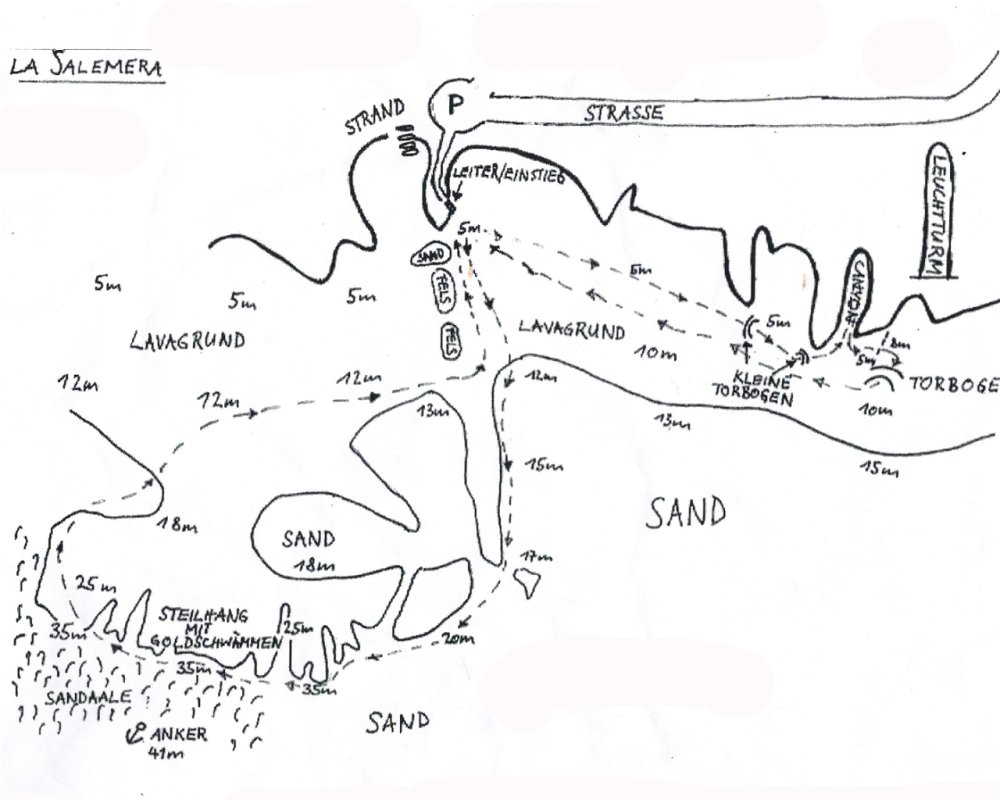 LA SALEMERA
P
STRAND
STRASSE
LEITER/EINSTIEG
LEUCHTTURM
5m
SAND
FELS
FELS
5m
5m
5m
5m
LAVAGRUND
LAVAGRUND
5m
10m
CANYON
5m
8m
KLEINE
TORBOGEN
TORBOGE
10m
12m
12m
12m
12m
13m
13m
15m
15m
SAND
18m
SAND
18m
17m
25m
35m
STEILHANG
MIT
GOLDSCHWÄMMEN
25m
20m
35m
35m
SANDAALE
SAND
ANKER
41m